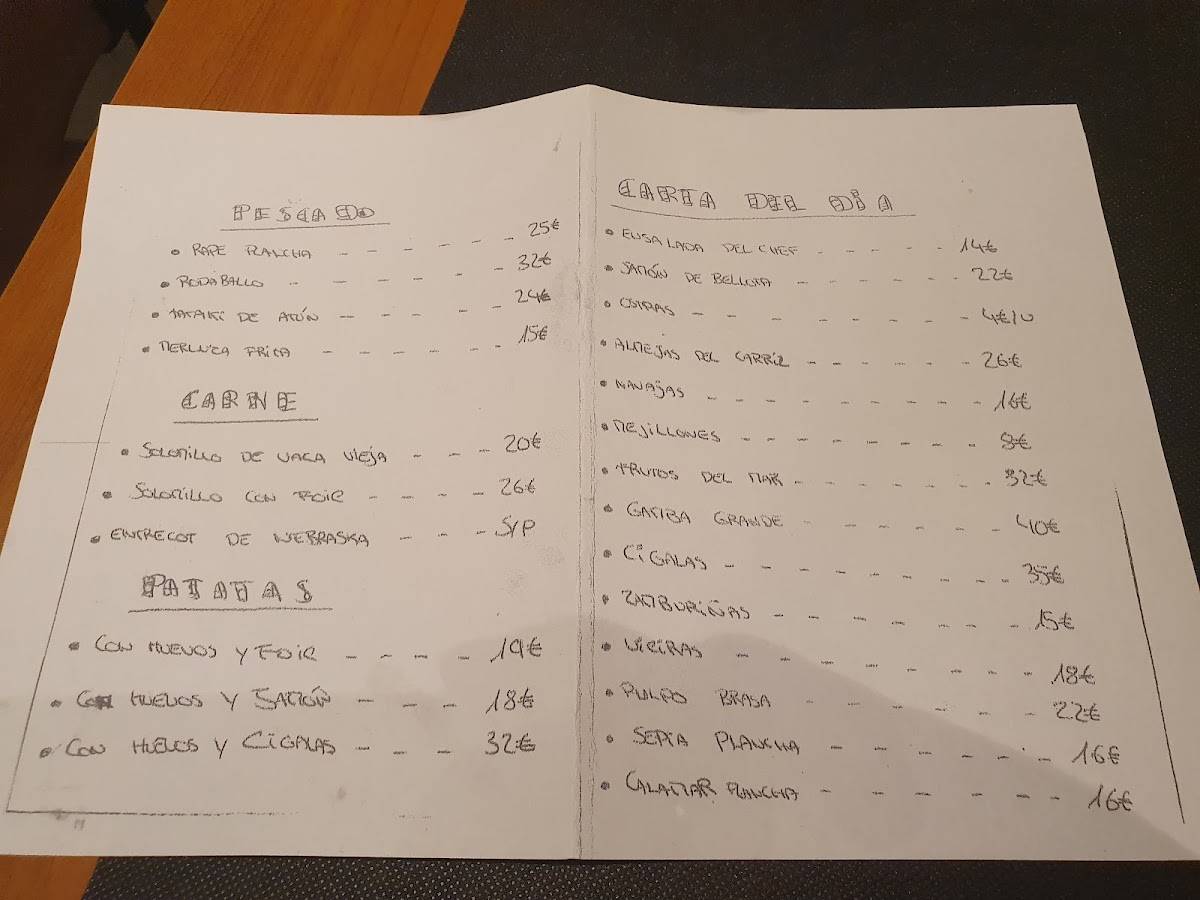 PESCADO
• RAPE PLANCHA - - - - - 25€
• RODABALLO - - - - - - 32€
• TATAKI DE ATÚN - - - - - - 24€
• MERLUZA FRITA - - - - - - 15€
CARNE
• SOLOMILLO DE VACA VIEJA - - - 20€
• SOLOMILLO CON FOIE - - - - 26€
• ENTRECOT DE NEBRASKA - - - S/P
PATATAS
• CON HUEVOS Y FOIE - - - - 19€
• CON HUEVOS Y JAMÓN - - - - 18€
• CON HUEVOS Y CIGALAS - - - - 32€
CARTA DEL DÍA
• ENSALADA DEL CHEF - - - - 14€
• JAMÓN DE BELLOTA - - - - - 22€
• OSTRAS - - - - - - - - 4€/U
• ALMEJAS DEL CARRIL - - - - - 26€
• NAVAJAS - - - - - - - - 16€
• MEJILLONES - - - - - - - 8€
• FRUTOS DEL MAR - - - - - - 32€
• GAMBA GRANDE - - - - - - 40€
• CIGALAS - - - - - - - - - 35€
• ZAMBURIÑAS - - - - - - - 15€
• VIEIRAS - - - - - - - - 18€
• PULPO BRASA - - - - - - - 22€
• SEPIA PLANCHA - - - - - - 16€
• CALAMAR PLANCHA - - - - - - 16€